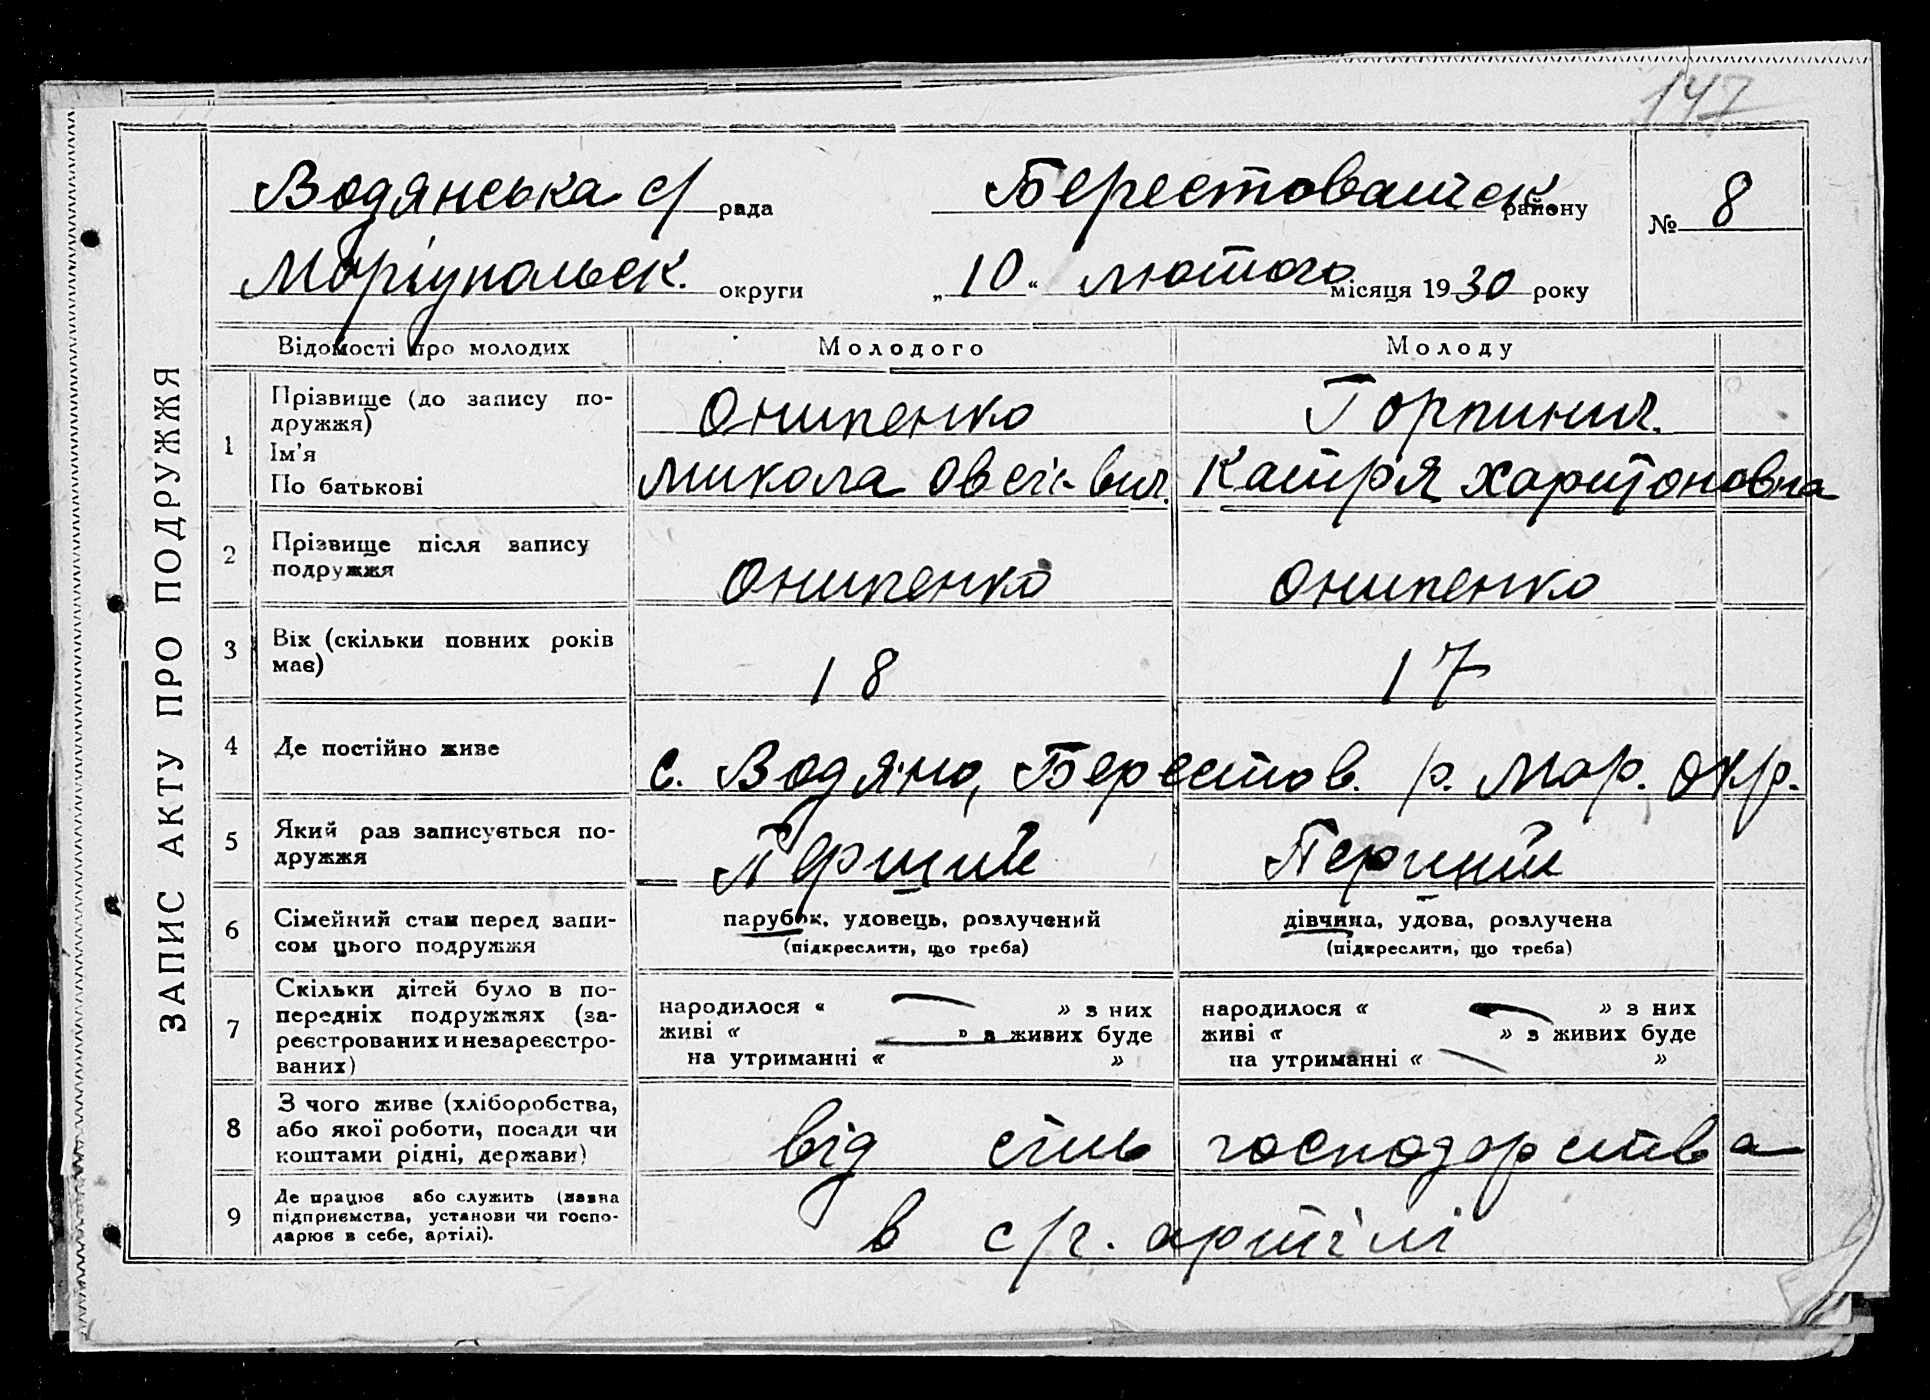 147
Водянська с/ рада
Берестованьск. району
№ 8
Маріупольск. округи
„10“ лютого місяця 1930 року
ЗАПИС АКТУ ПРО ПОДРУЖЖЯ
Відомості про молодих
Молодого
Молоду
1
Прізвище (до запису по-
дружжя)
Ім'я
По батькові
Онипенко
Микола Овсієвич.
Горпинич.
Катря Харитоновна
2
Прізвище після запису
подружжя
Онипенко
Онипенко
3
Вік (скільки повних років
має)
18
17
4
Де постійно живе
с. Водяно, Берестов. р. Мар. окр.
5
Який раз записується по-
дружжя
Перший
Перший
6
Сімейний стан перед запи-
сом цього подружжя
парубок, удовець, розлучений
(підкреслити, що треба)
дівчина, удова, розлучена
(підкреслити, що треба)
7
Скільки дітей було в по-
передніх подружжях (за-
реєстрованих и незареєстро-
ваних)
народилося « » з них
живі « » з живих буде
на утриманні « »
народилося « » з них
живі « » з живих буде
на утриманні « »
8
З чого живе (хліборобства,
або якої роботи, посади чи
коштами рідні, держави)
від сіль господарства
9
Де працює або служить (назва
підприємства, установи чи госпо-
дарює в себе, артілі).
в с/г. артілі